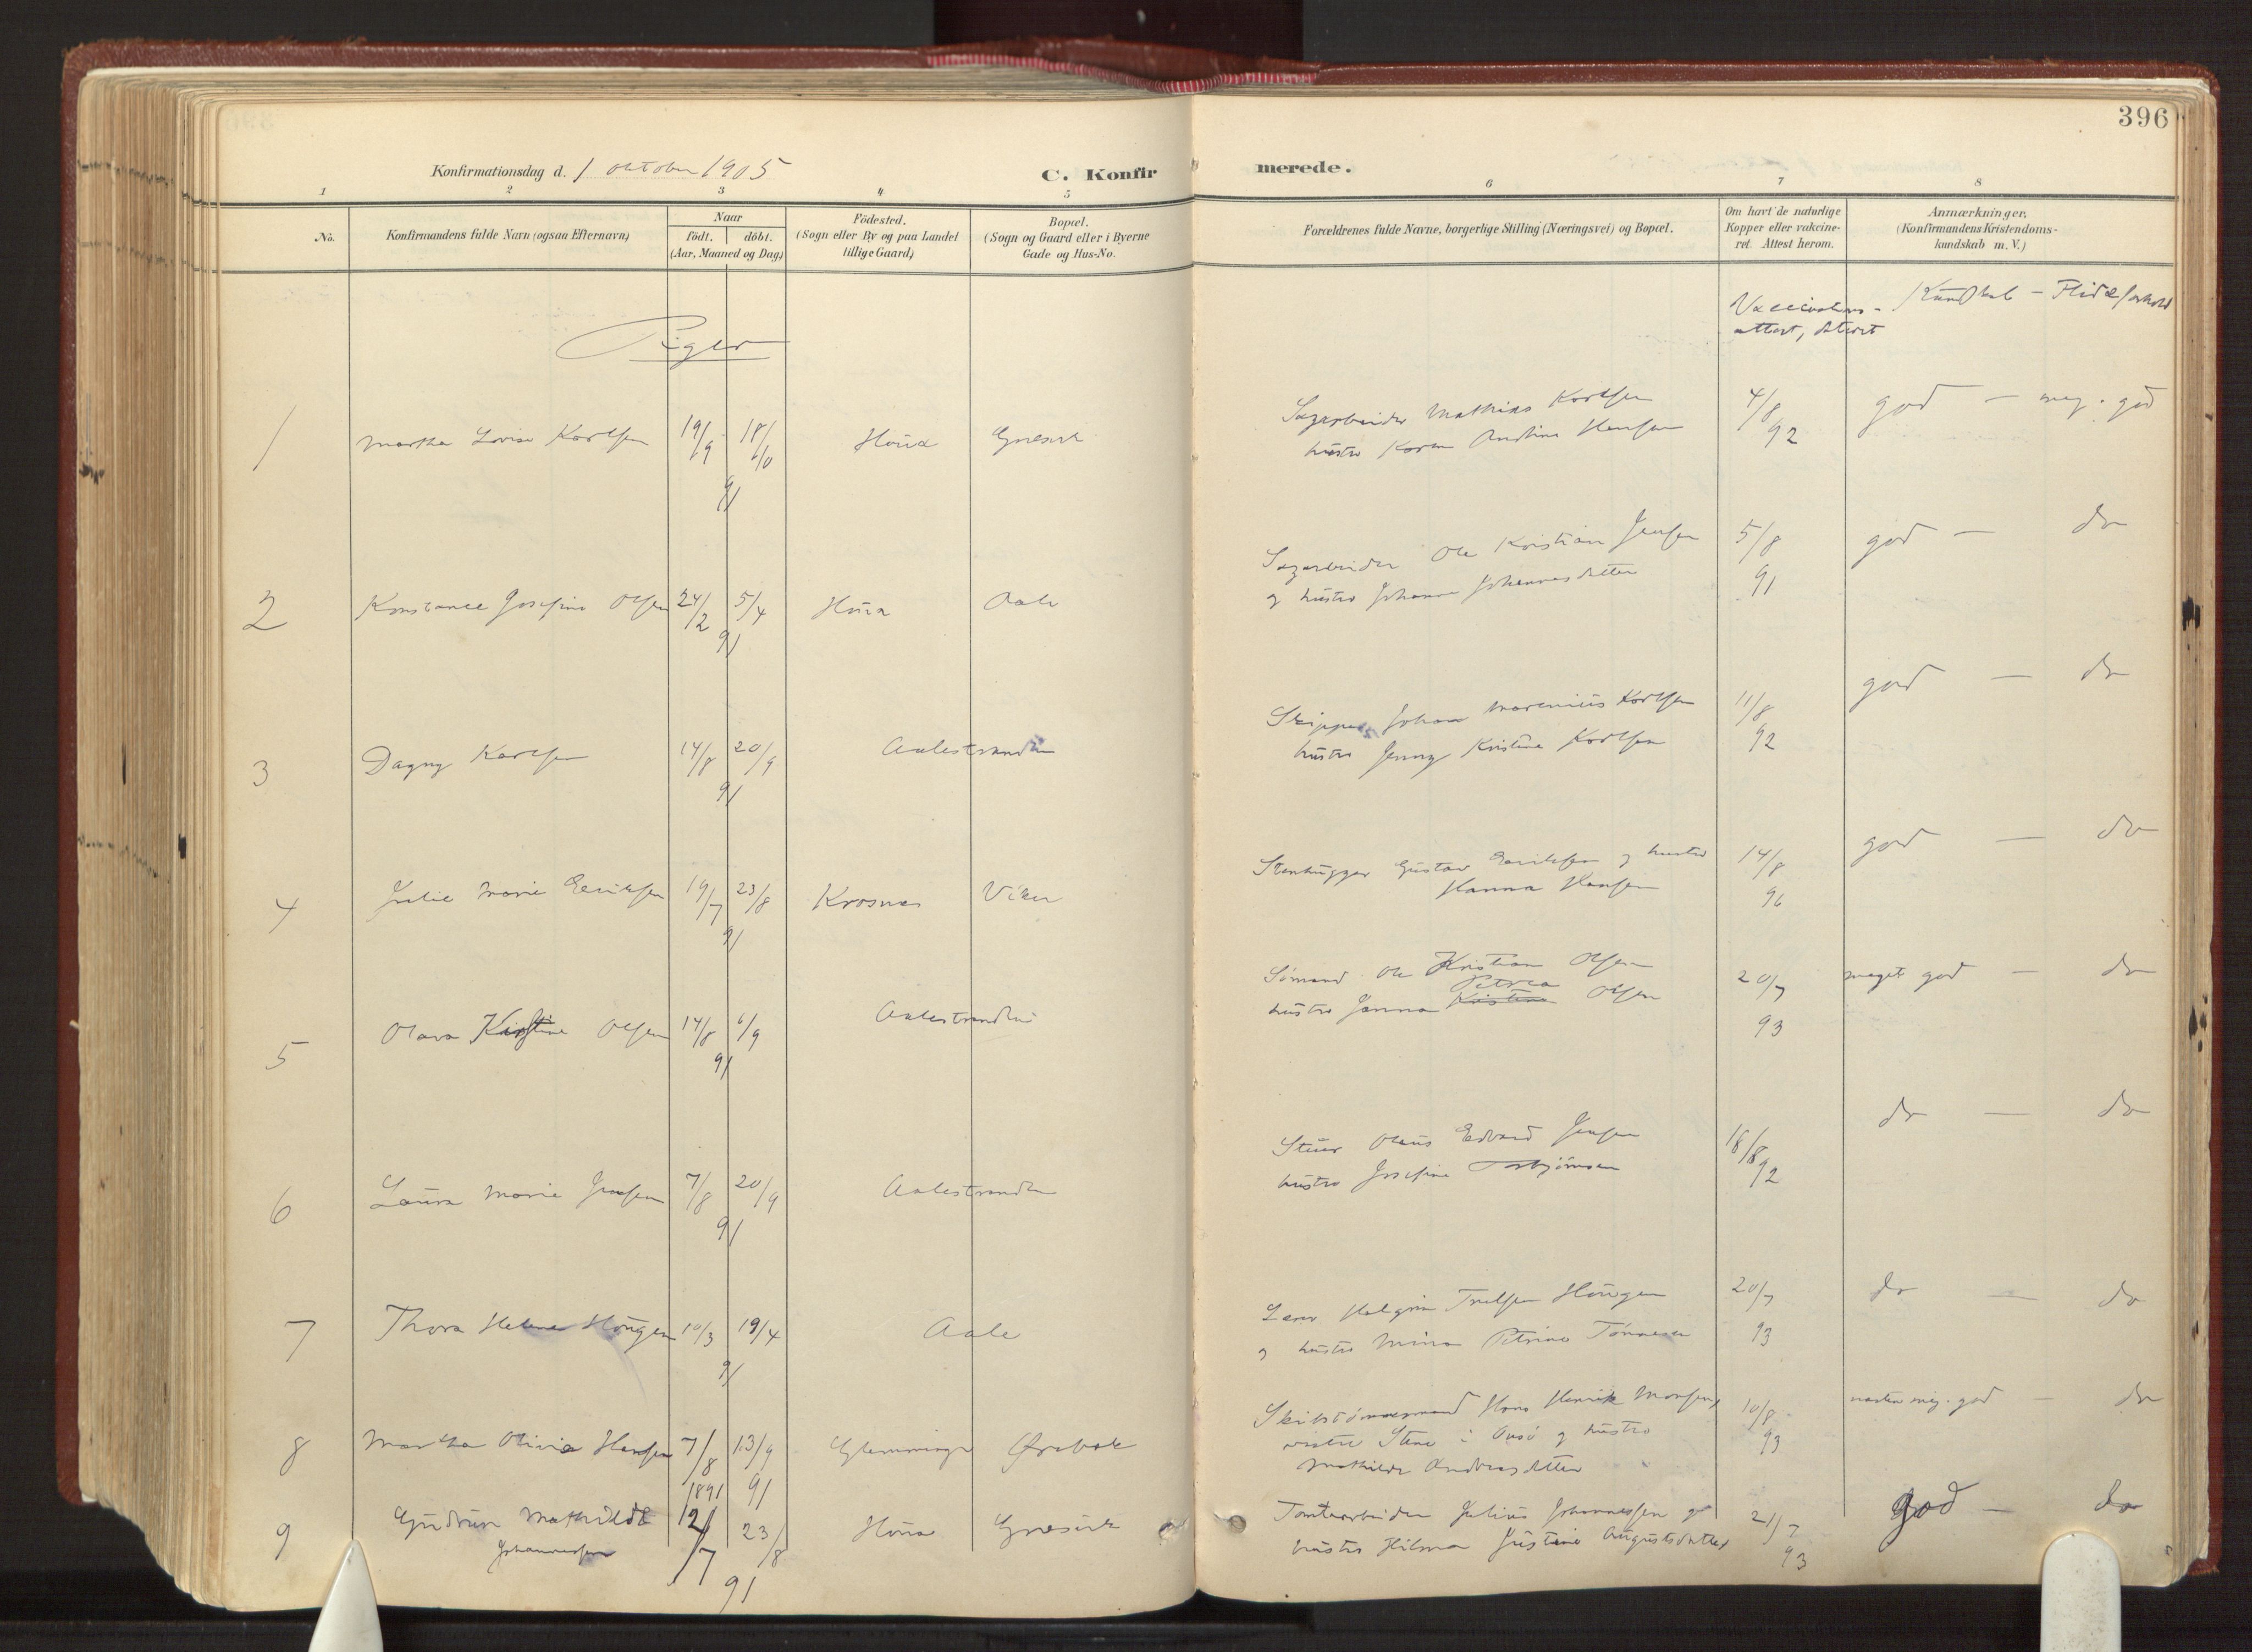 396
Konfirmationsdag d. 1 oktober 1905
C. Konfirmerede.
1 2 3 4 5 6 7 8
No.
Konfirmandens fulde Navn (ogsaa Efternavn)
Naar
födt. döbt.
(Aar, Maaned og Dag)
Födested.
(Sogn eller By og paa Landet
tillige Gaard)
Bopæl.
(Sogn og Gaard eller i Byerne
Gade og Hus-No.
Forældrenes fulde Navne, borgerlige Stilling (Næringsvei) og Bopæl.
Om havt de naturlige
Kopper eller vakcine-
ret. Attest herom.
Anmærkninger.
(Konfirmandens Kristendoms-
kundskab m. V.)
Vaccinations-
attest, dateret
Kundskab – Flid & forhold
Piger
1 Martha Lovise Karlsen 19/9 18/10 91 Huna Gresvik
Sagarbeider Mathias Karlsen
hustru Karen Andrine Hansen
4/8 92 god – meg. god
2 Konstance Josefine Olsen 24/2 5/4 91 Huna Aale
Sagarbeider Ole Kristian Jensen
og hustru Johanne Johannesdatter
5/8 91 god – do
3 Dagny Karlsen 14/8 20/9 91 Aalestranden
Skipper Johan Marenius Karlsen
hustru Jenny Kristine Karlsen
11/8 92 god – do
4 Julie Marie Eriksen 19/7 23/8 91 Krosnes Viken
Stenhugger Gustav Eriksen og hustru
Hanna Hansen
14/8 96 god – do
5 Olava Kirstine Olsen 14/8 6/9 91 Aalestranden
Sömand Ole Kristian Olsen
Petrea
hustru Janna Kristine Olsen
20/7 93 meget god – do
6 Laura Marie Jensen 7/8 20/9 91 Aalestranden
Stuer Olaus Edvard Jensen
hustru Josefine Torbjörnsen
18/8 92 do – do
7 Thora Helene Haugen 10/3 19/4 91 Aale
Lærer Halgrim Truelsen Haugen
og hustru Mina Petrine Tönnesen
20/7 93 do – do
8 Martha Olivia Hansen 7/8 1891 13/9 91 Glemminge Ørebæk
Skibstömmermand Hans Henrik Monsen,
vestre Stene i Onsö og hustru
Mathilde Andreasdatter
10/8 93 næsten meg. god – do
9 Gudrun Mathilde
Johannessen
12/7 23/8 91 Huna Gresvik
Tomtearbeider Julius Johannessen og
hustru Hilma Justine Augustsdatter
21/7 93 god – do